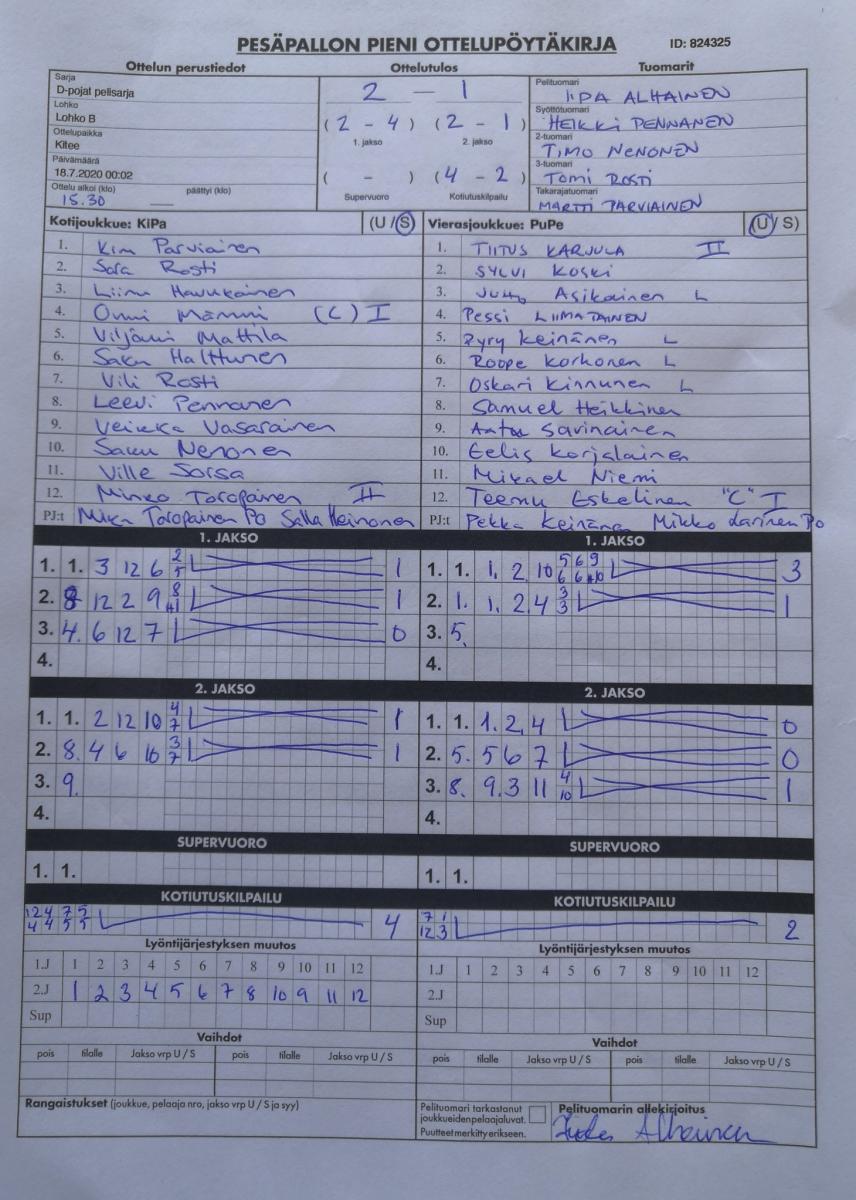 PESÄPALLON PIENI OTTELUPÖYTÄKIRJA ID: 824325
Ottelun perustiedot Ottelutulos Tuomarit
Sarja
D-pojat pelisarja
Lohko
Lohko B
Ottelupaikka
Kitee
Päivämäärä
18.7.2020 00:02
Ottelu alkoi (klo) päättyi (klo)
15.30
2 — 1
(2 - 4) (2 - 1)
1. jakso 2. jakso
( - ) (4 - 2)
Supervuoro Kotiutuskilpailu
Pelituomari
IIDA ALHAINEN
Syöttötuomari
HEIKKI PENNANEN
2-tuomari
TIMO NENONEN
3-tuomari
TOMI ROSTI
Takarajatuomari
MARTTI PARVIAINEN
Kotijoukkue: KiPa (U / S)
1. Kim Parviainen
2. Sara Rosti
3. Liinu Havukainen
4. Onni Mämmi (C) I
5. Viljami Mattila
6. Saku Halttunen
7. Vili Rosti
8. Leevi Pennanen
9. Veikka Vasarainen
10. Saku Nenonen
11. Ville Sorsa
12. Minko Toropainen II
PJ:t Mika Toropainen Po Salla Heinonen
Vierasjoukkue: PuPe (U / S)
1. TIITUS KARJULA II
2. SYLVI KOSKI
3. Juho Asikainen L
4. Pessi LIIMATAINEN
5. Pyry Keinänen L
6. Roope Korhonen L
7. Oskari Kinnunen L
8. Samuel Heikkinen
9. Anttu Savinainen
10. Eelis Korjalainen
11. Mikael Niemi
12. Teemu Eskelinen "C" I
PJ:t Pekka Keinänen Mikko Larinen Po
1. JAKSO
1. 1. 3 12 6 2 5 1
2. 8 12 2 9 8 11 1
3. 4. 6 12 7 0
4.
1. JAKSO
1. 1. 1. 2 10 5 6 9 6 6 10 3
2. 1. 1. 2 4 3 3 1
3. 5.
4.
2. JAKSO
1. 1. 2 12 10 4 7 1
2. 8. 4 6 10 3 7 1
3. 9.
4.
2. JAKSO
1. 1. 1. 2. 4 0
2. 5. 5 6 7 0
3. 8. 9. 3 11 4 10 1
4.
SUPERVUORO
1. 1.
SUPERVUORO
1. 1.
KOTIUTUSKILPAILU
12 4 7 5
4 4 5 5 4
KOTIUTUSKILPAILU
7 1
12 3 2
Lyöntijärjestyksen muutos
1.J 1 2 3 4 5 6 7 8 9 10 11 12
2.J 1 2 3 4 5 6 7 8 10 9 11 12
Sup
Lyöntijärjestyksen muutos
1.J 1 2 3 4 5 6 7 8 9 10 11 12
2.J
Sup
Vaihdot
pois tilalle Jakso vrp U / S pois tilalle Jakso vrp U / S
Vaihdot
pois tilalle Jakso vrp U / S pois tilalle Jakso vrp U / S
Rangaistukset (joukkue, pelaaja nro, jakso vrp U / S ja syy)
Pelituomari tarkastanut
joukkueiden pelaajaluvat.
Puutteet merkitty erikseen.
Pelituomarin allekirjoitus
Alhainen